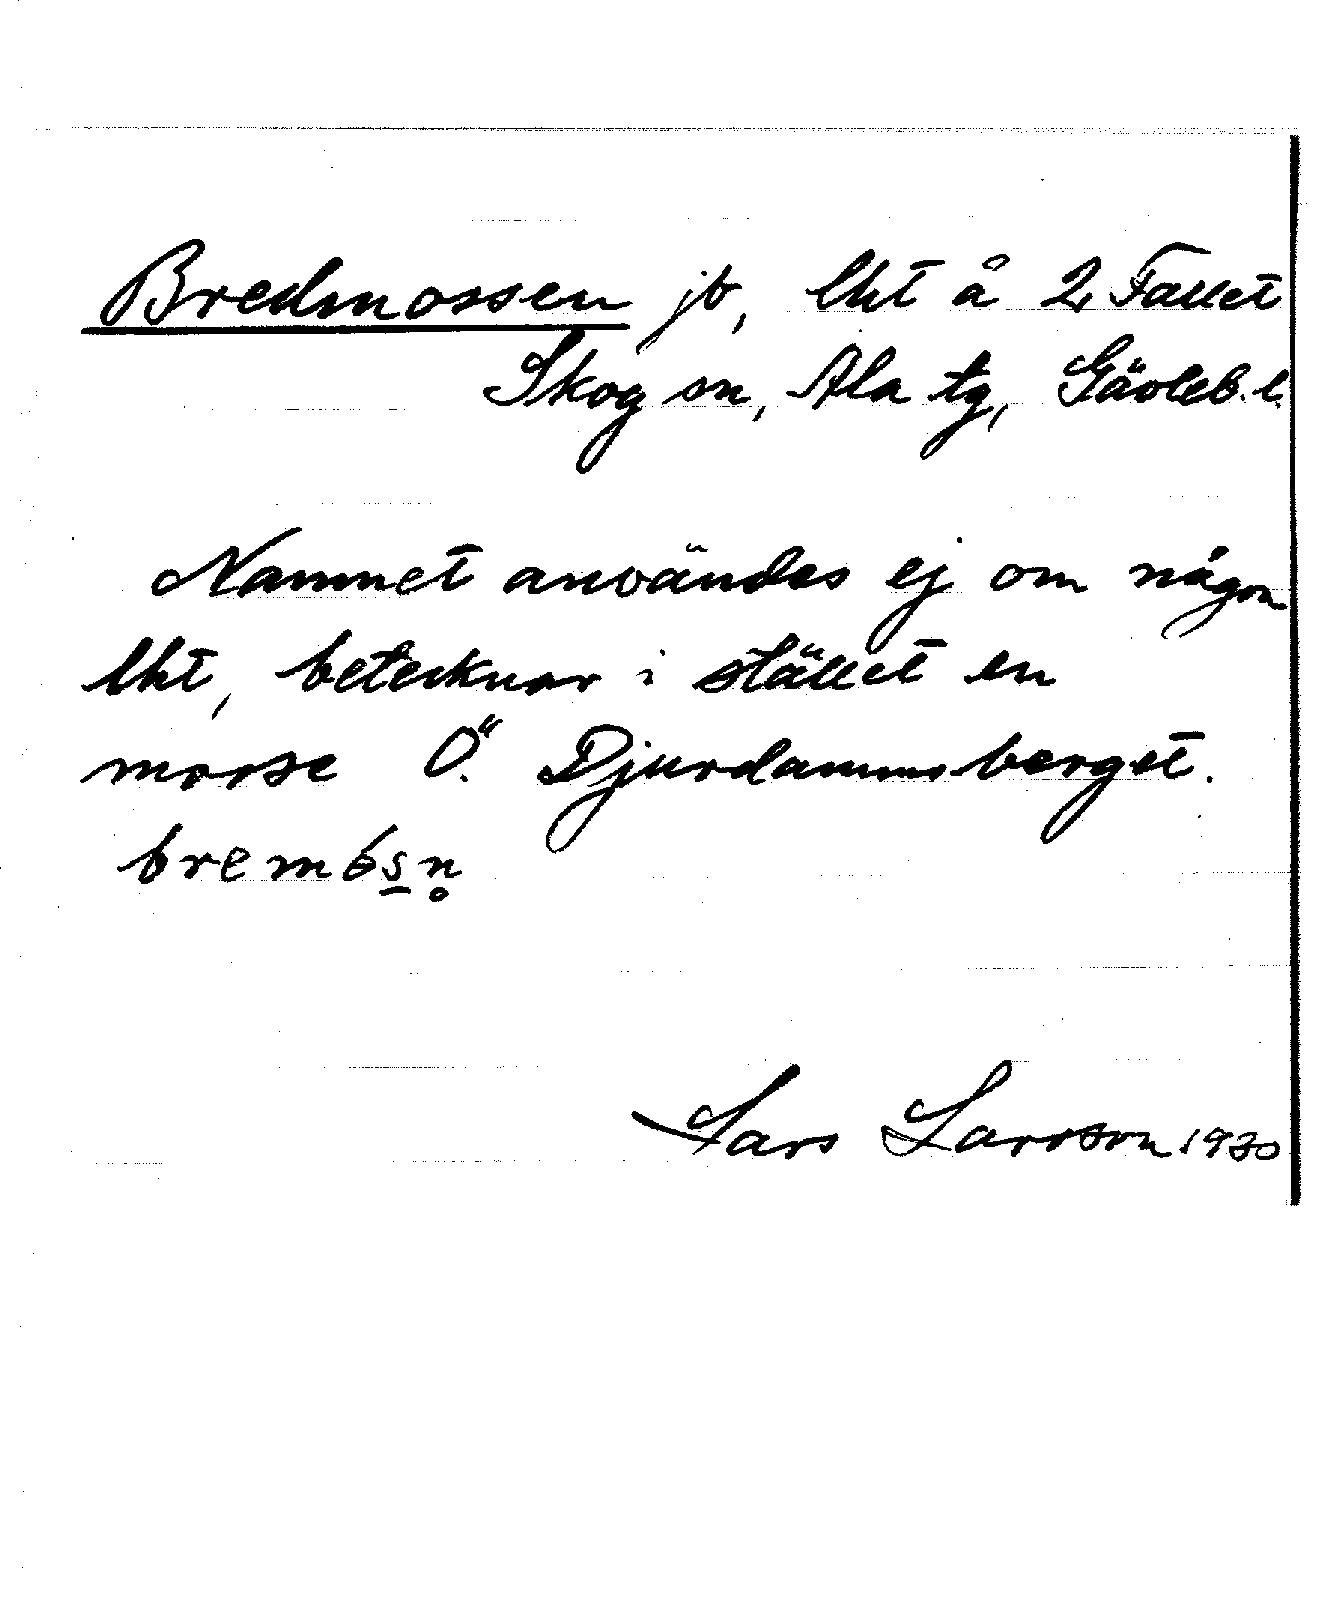 Bredmossen jb, lht å 2 Fallet
Skog sn, Ala tg, Gävleb. l.
Namnet användes ej om någon
lht, betecknar i stället en
mosse Ö. Djurdammsberget.
bremósn
Lars Larsson 1930